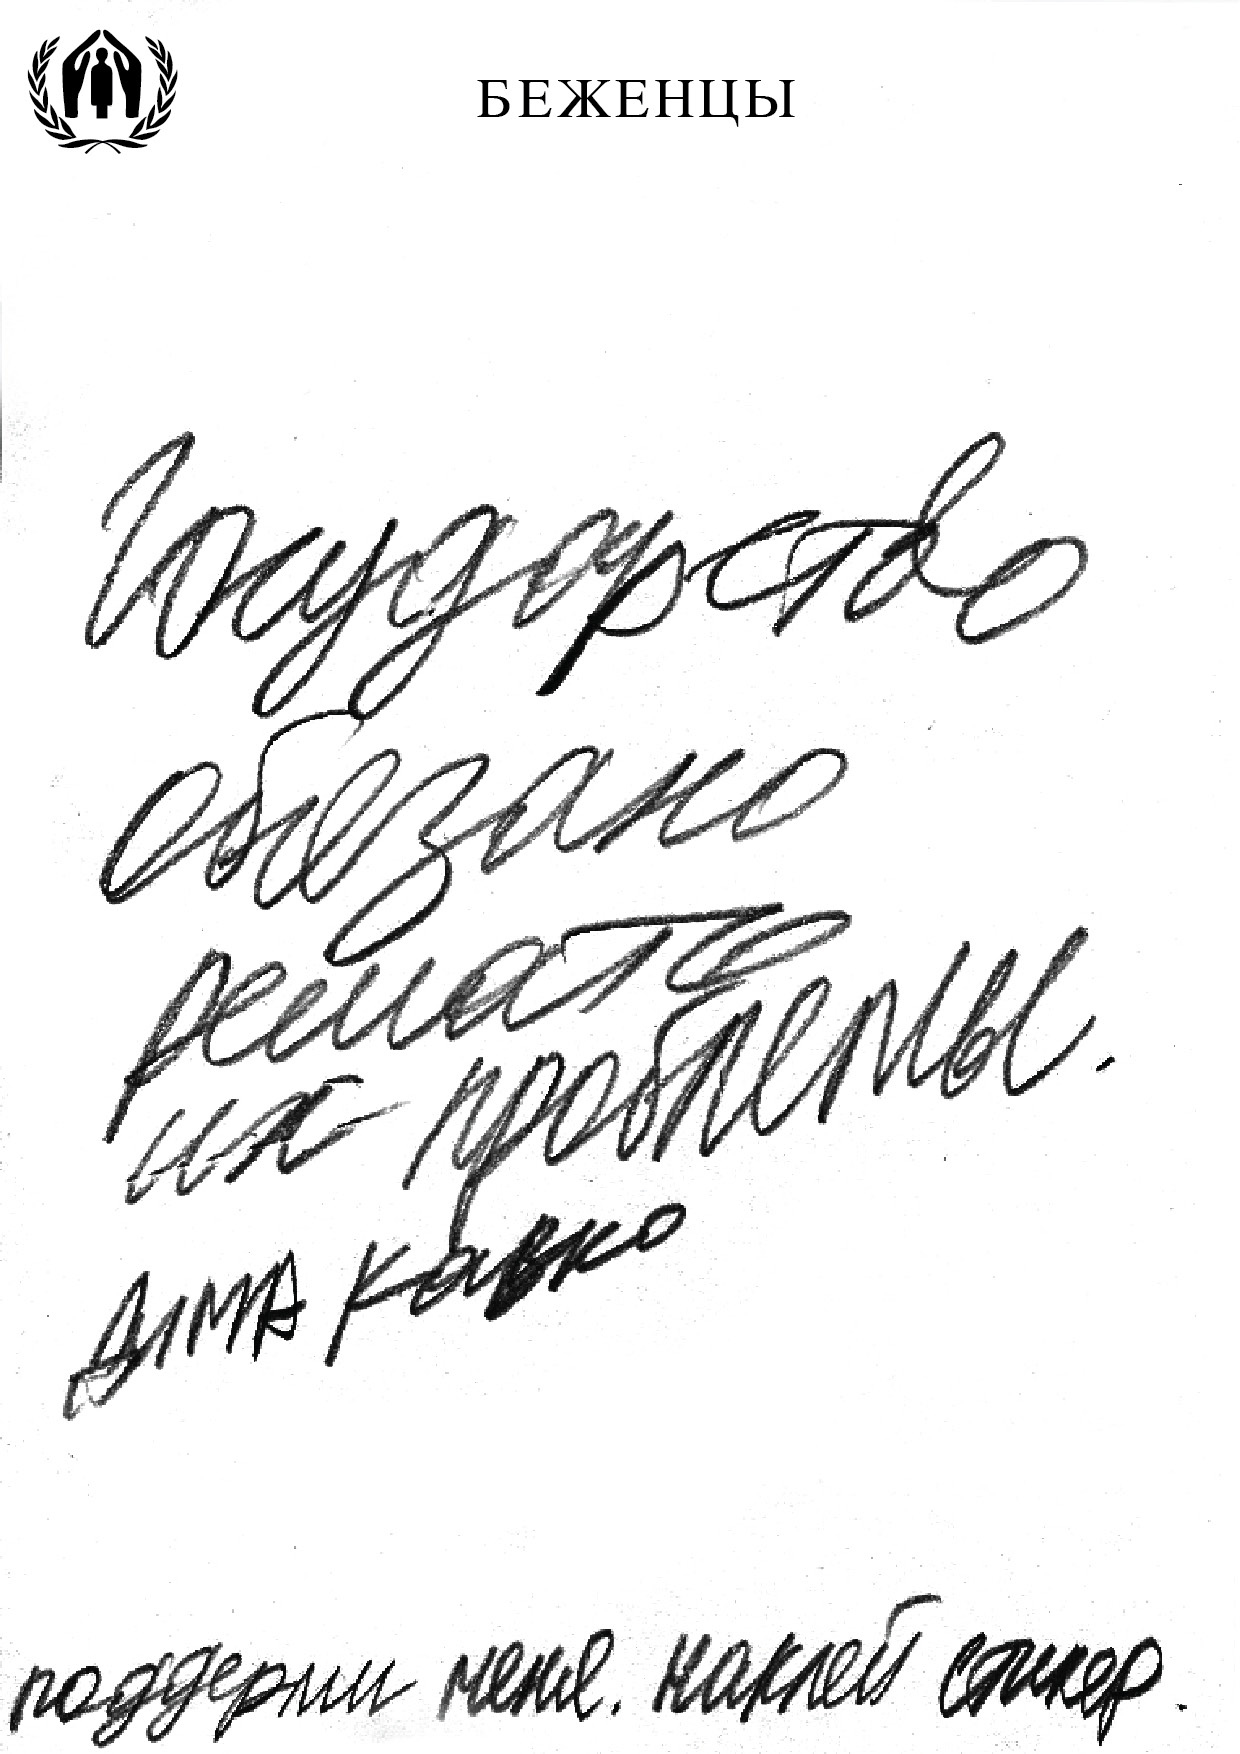 БЕЖЕНЦЫ
Государство
обязано
решать
их проблемы.
Діма Кавко
поддержи меня. наклей стикер.